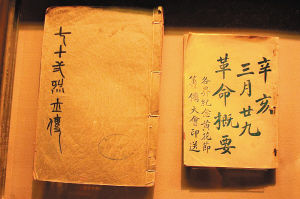 七十弍烈士傳
辛亥
三月廿九
革命概要
各界紀念黃花節
籌備大會印送